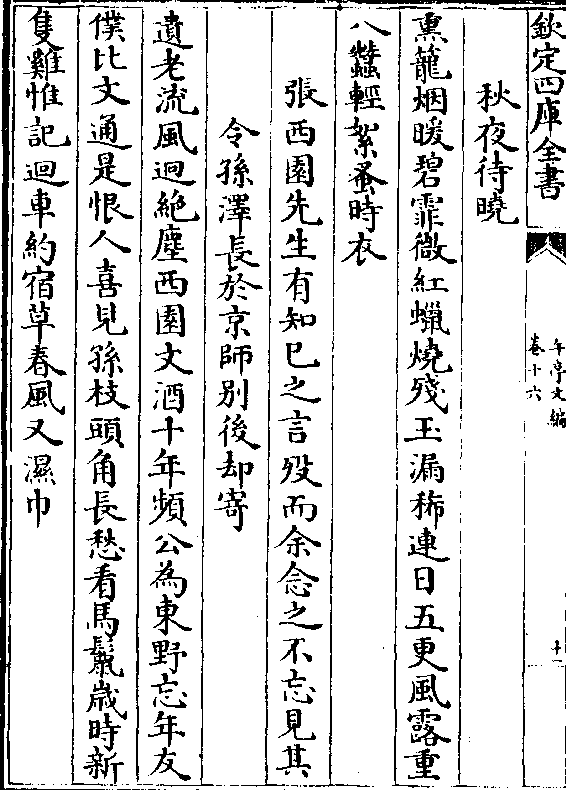 欽定四庫全書
午亭文編
卷十六
十一
秋夜待曉
熏籠烟暖碧霏微紅蠟燒殘玉漏稀連日五更風露重
八蠶輕絮蚤時衣
張西園先生有知已之言歿而余念之不忘見其
令孫澤長於京師别後却寄
遺老流風迥絶塵西園文酒十年頻公為東野忘年友
僕比文通是恨人喜見孫枝頭角長愁看馬鬛歲時新
隻雞惟記迴車約宿草春風又濕巾